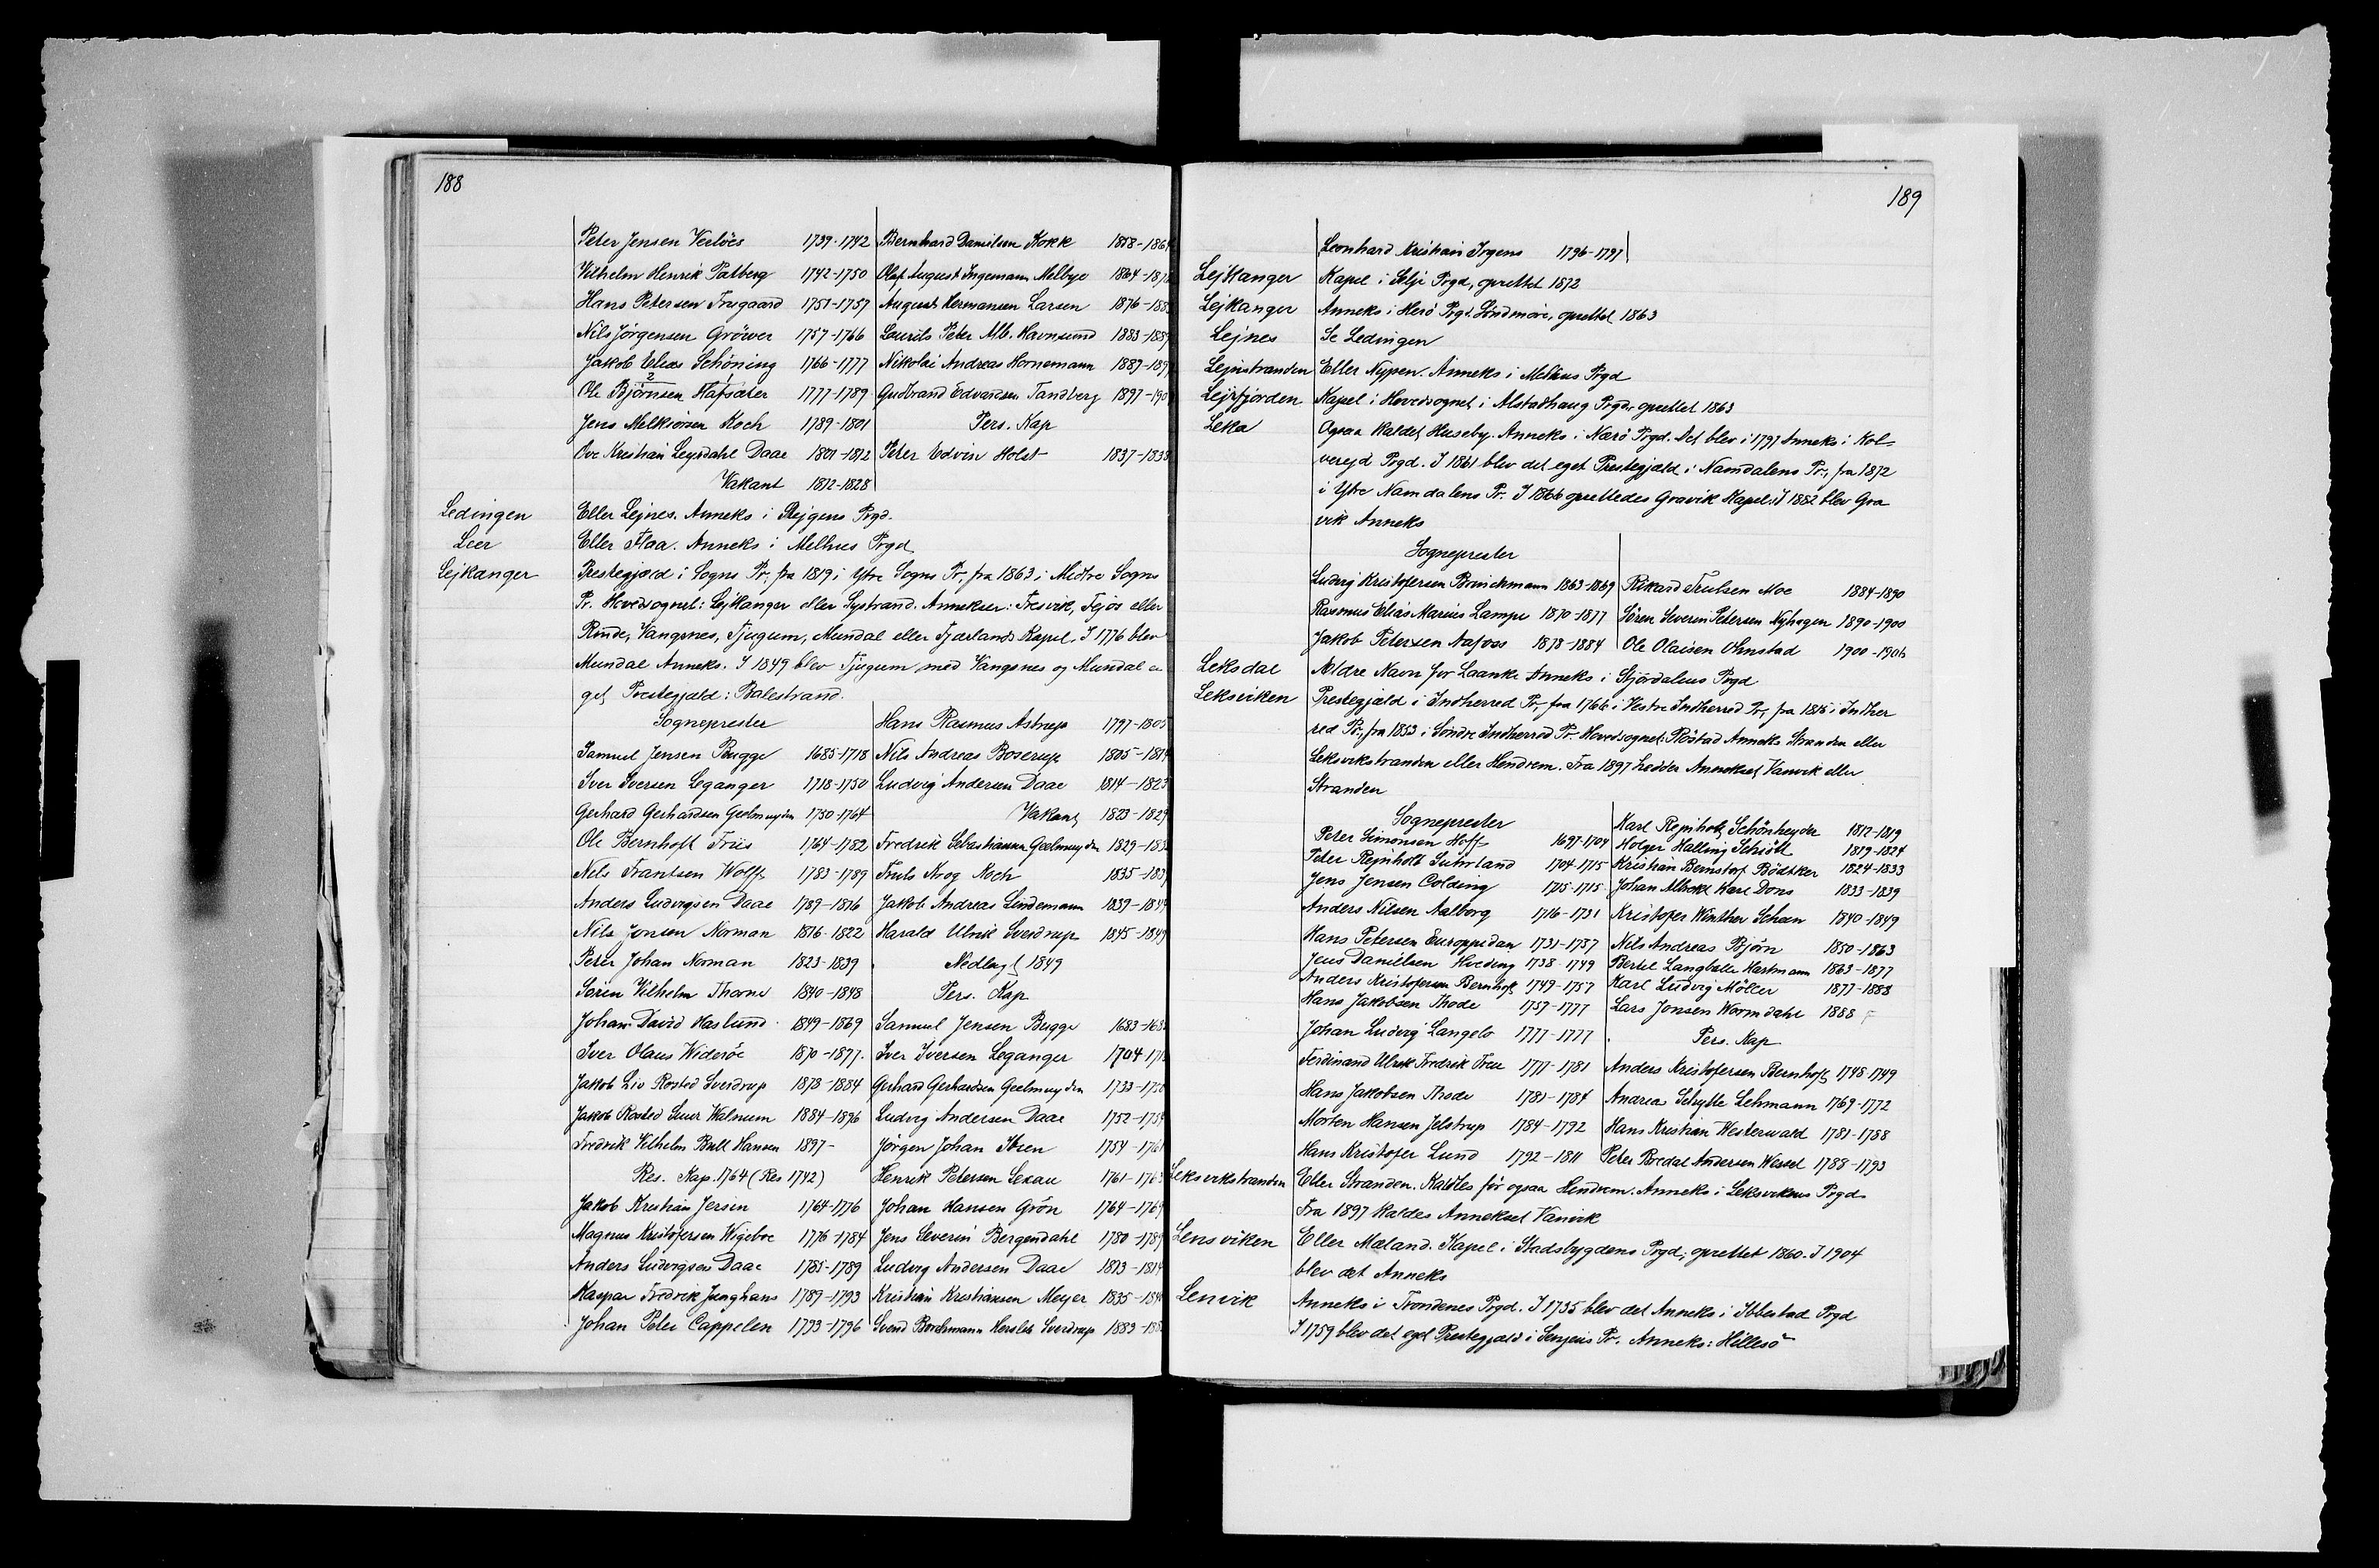 188
Peter Jensen Veelöes 1739-1742
Vilhelm Henrik Patberg 1742-1750
Hans Petersen Trugaard 1751-1757
Nils Jörgensen Gröwer 1757-1766
Jakob Elias Schöning 1766-1777
Ole Björnsen Hafsater 1777-1789
Jens Melkiorsen Koch 1789-1801
Ove Kristian Leyrdahl Daae 1801-1812
Vakant 1812-1828
Bernhard Danielsen Kokk 1858-1864
Olaf August Ingemann Melbye 1864-187
August Hermansen Larsen 1876-188
Laurits Peter Alb. Havnsund 1883-188
Nikolai Andreas Hornemann 1887-189
Gudbrand Edvardsen Tandberg 1897-190
Pers. Kap
Peter Edvin Holst 1837-1838
Ledingen Eller Lejnes. Anneks i Rejgens Prgd.
Leer Eller Flaa. Anneks i Melhus Prgd
Lejkanger Prestegjæld i Sogns Pr, fra 1819 i Ytre Sogns Pr, fra 1863 i Midtre Sogns
Pr. Hovedsognet: Lejkanger eller Systrand. Annekser: Fresvik, Fejos eller
Rinde, Vangsnes, Tjugum, Mundal eller Fjærlands Kapel. I 1776 blev
Mundal Anneks. I 1849 blev Tjugum med Vangsnes og Mundal e
get Prestegjæld: Balestrand.
Sogneprester
Samuel Jensen Bugge 1685-1718
Iver Iversen Leganger 1718-1750
Gerhard Gerhardsen Geelmuyden 1750-1764
Ole Bernhoft Friis 1764-1782
Nils Frantsen Wolff 1783-1789
Anders Ludvigsen Daae 1789-1816
Nils Jensen Norman 1816-1822
Peter Johan Norman 1823-1839
Sören Vilhelm Thorne 1840-1848
Johan David Haslund 1849-1869
Iver Olaus Wideröe 1870-1877
Jakob Liv Rosted Sverdrup 1878-1884
Jakob Rosted Suur Walnum 1884-1896
Fredrik Vilhelm Bull Hansen 1897-
Res. Kap. 1764 (Res 1742)
Jakob Kristian Jersin 1764-1776
Magnus Kristofersen Wigeboe 1776-1784
Anders Ludvigsen Daae 1785-1789
Kaspar Fredrik Junghans 1789-1793
Johan Peter Cappelen 1793-1796
Hans Rasmus Astrup 1797-1805
Nils Andreas Boserup 1805-1814
Ludvig Andersen Daae 1814-1823
Vakant 1823-1829
Fredrik Sebastiansen Geelmuyden 1829-183
Truls Krog Koch 1835-1839
Jakob Andreas Lindemann 1839-184
Harald Ulrik Sverdrup 1845-1849
Nedlagt 1849
Pers. Kap
Samuel Jensen Bugge 1683-168
Iver Iversen Leganger 1704 171
Gerhard Gerhardsen Geelmuyden 1733-1750
Ludvig Andersen Daae 1752-1754
Jörgen Johan Ibsen 1754-1761
Henrik Petersen Lexau 1761-1763
Johan Hansen Grön 1764-1769
Jens Severin Bergendahl 1780-1789
Ludvig Andersen Daae 1813-1814
Kristian Kristiansen Meyer 1835-184
Svend Borchmann Hersleb Sverdrup 1883-188
189
Leonhard Kristian Irgens 1796-1797
Lejkanger Kapel i Selje Prgd, oprettet 1872
Lejkanger Anneks i Herö Prgd. Söndmöre, oprettet 1863
Lejnes Se Ledingen
Lejnstranden Eller Nypen. Anneks i Melhus Prgd
Lejrfjorden Kapel i Hovedsognet i Alstadhaug Prgd, oprettet 1863
Leka Ogsaa kaldet Huseby. Anneks i Nærö Prgd. Det blev i 1797 Anneks i Kol-
verejd Prgd. I 1861 blev det eget Prestegjæld i Namdalens Pr, fra 1872
i Ytre Namdalens Pr. I 1866 oprettedes Gravik Kapel. I 1882 blev Gra
vik Anneks
Sogneprester
Ludvig Kristofersen Brinchmann 1863-1869
Rasmus Elias Marius Lampe 1870-1877
Jakob Petersen Aafoss 1878-1884
Rikard Trulsen Moe 1884-1890
Sören Severin Petersen Nyhagen 1890-1900
Ole Olaisen Ohnstad 1900-1906
Leksdal Ældre Navn for Laanke Anneks i Stjördalens Prgd
Leksviken Prestegjæld i Indherred Pr, fra 1766 i Vestre Indherred Pr, fra 1815 i Indher
red Pr, fra 1853 i Söndre Indherred Pr. Hovedsognet: Röstad Anneks Stranden eller
Leksvikstranden eller Hindrem. Fra 1897 hedder Annekset Vanvik eller
Stranden
Sogneprester
Peter Simonsen Hoff 1697-1704
Peter Rejnholt Suhrland 1704-1715
Jens Jensen Colding 1715-1715
Anders Nilsen Aalborg 1716-1731
Hans Petersen Europpedan 1731-1737
Jens Danielsen Hveding 1738-1749
Anders Kristofersen Bernhoft 1749-1757
Hans Jakobsen Thode 1757-1777
Johan Ludvig Langelo 1777-1777
Ferdinand Ulrik Fredrik Treu 1777-1781
Hans Jakobsen Thode 1781-1784
Morten Hansen Jelstrup 1784-1792
Hans Kristofer Lund 1792-1811
Karl Rejnholt Schönheyder 1812-1819
Holger Halling Schiött 1819-1824
Kristian Bernstorf Bödtker 1824-1833
Johan Albrekt Karl Dons 1833-1839
Kristofer Winther Scheen 1840-1849
Nils Andreas Bjørn 1850-1863
Bertel Langballe Hartmann 1863-1877
Karl Ludvig Möller 1877-1888
Lars Jonsen Wormdahl 1888
Pers. Kap
Anders Kristofersen Bernhoft 1748-1749
Andreas Schytte Lehmann 1769-1772
Hans Kristian Westerwald 1781-1788
Peter Roedal Andersen Wessel 1788-1793
Leksvikstranden Eller Stranden. Kaldtes för ogsaa Hindrem. Anneks i Leksvikens Prgd
Fra 1897 kaldes Annekset Vanvik
Lensviken Eller Mæland. Kapel i Stadsbygdens Prgd, oprettet 1860. I 1904
blev det Anneks
Lenvik Anneks i Trondenes Prgd. I 1735 blev det Anneks i Ibbestad Prgd
I 1759 blev det eget Prestegjæld i Senjens Pr. Anneks: Hillesö